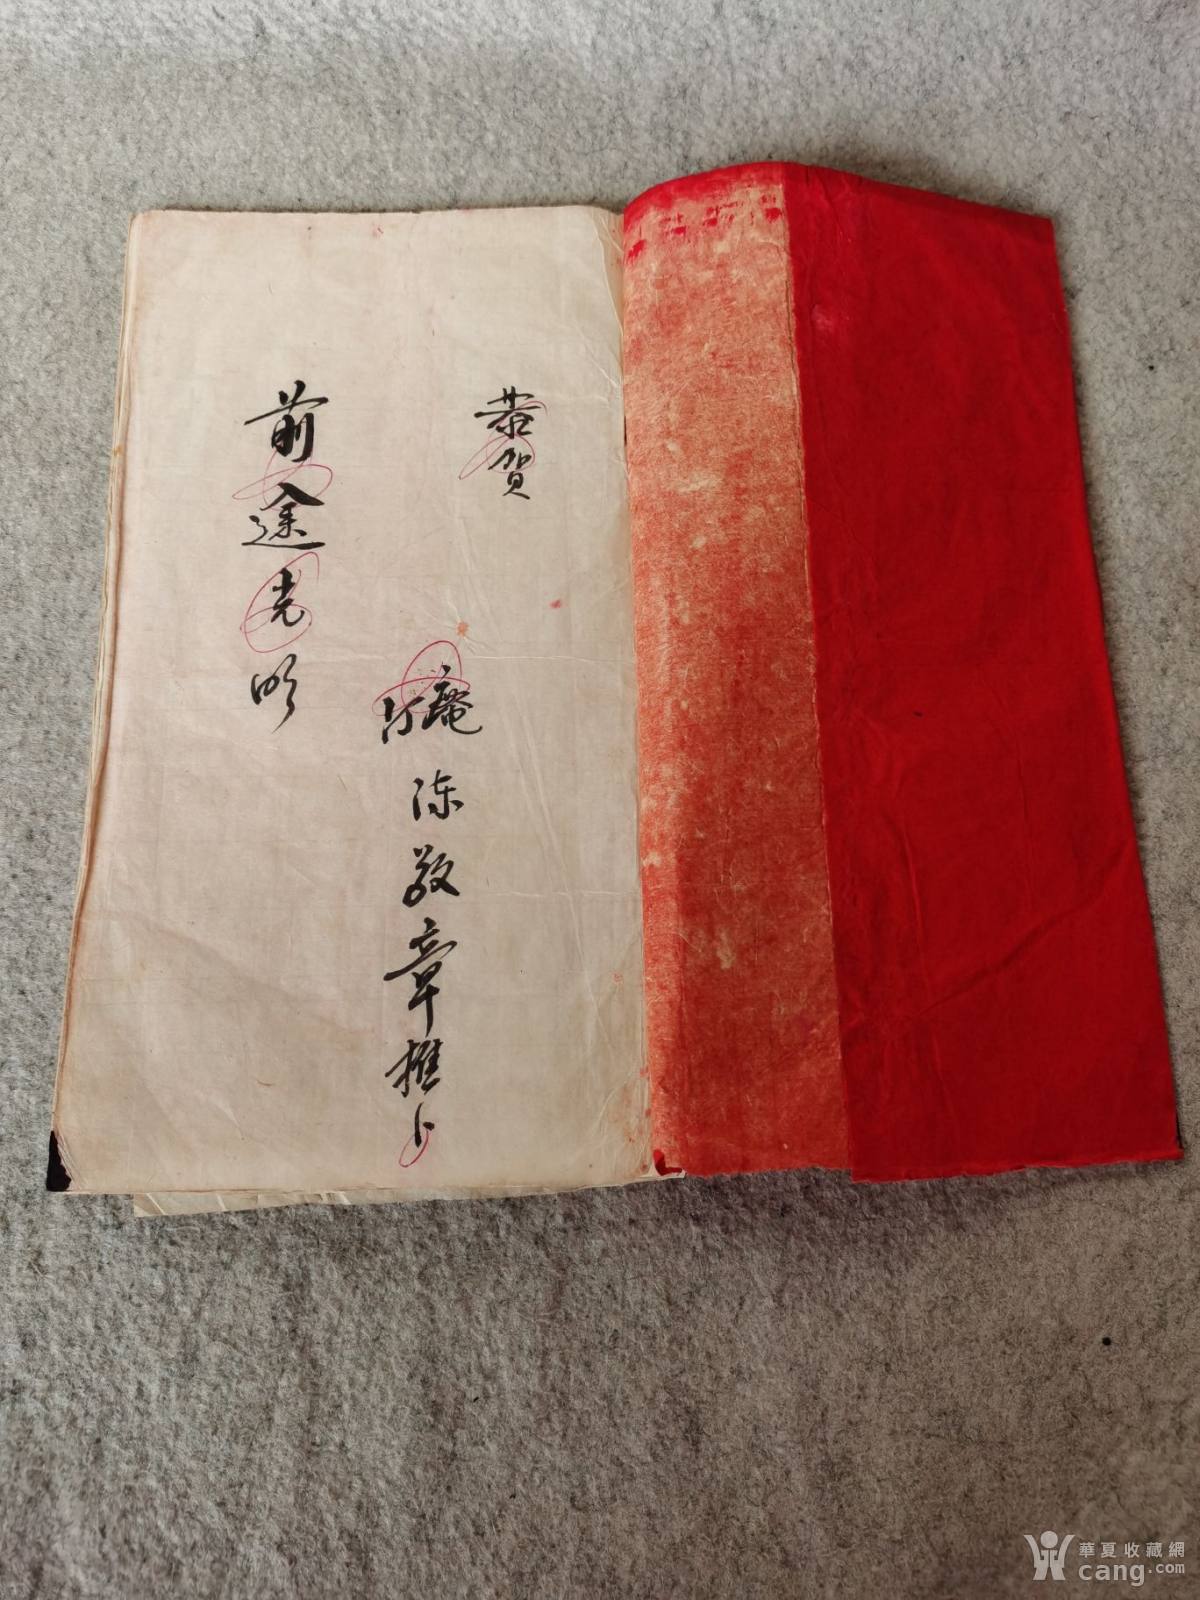 恭賀
庵
陈敬章推卜
前途光明
華夏收藏網
cang.com